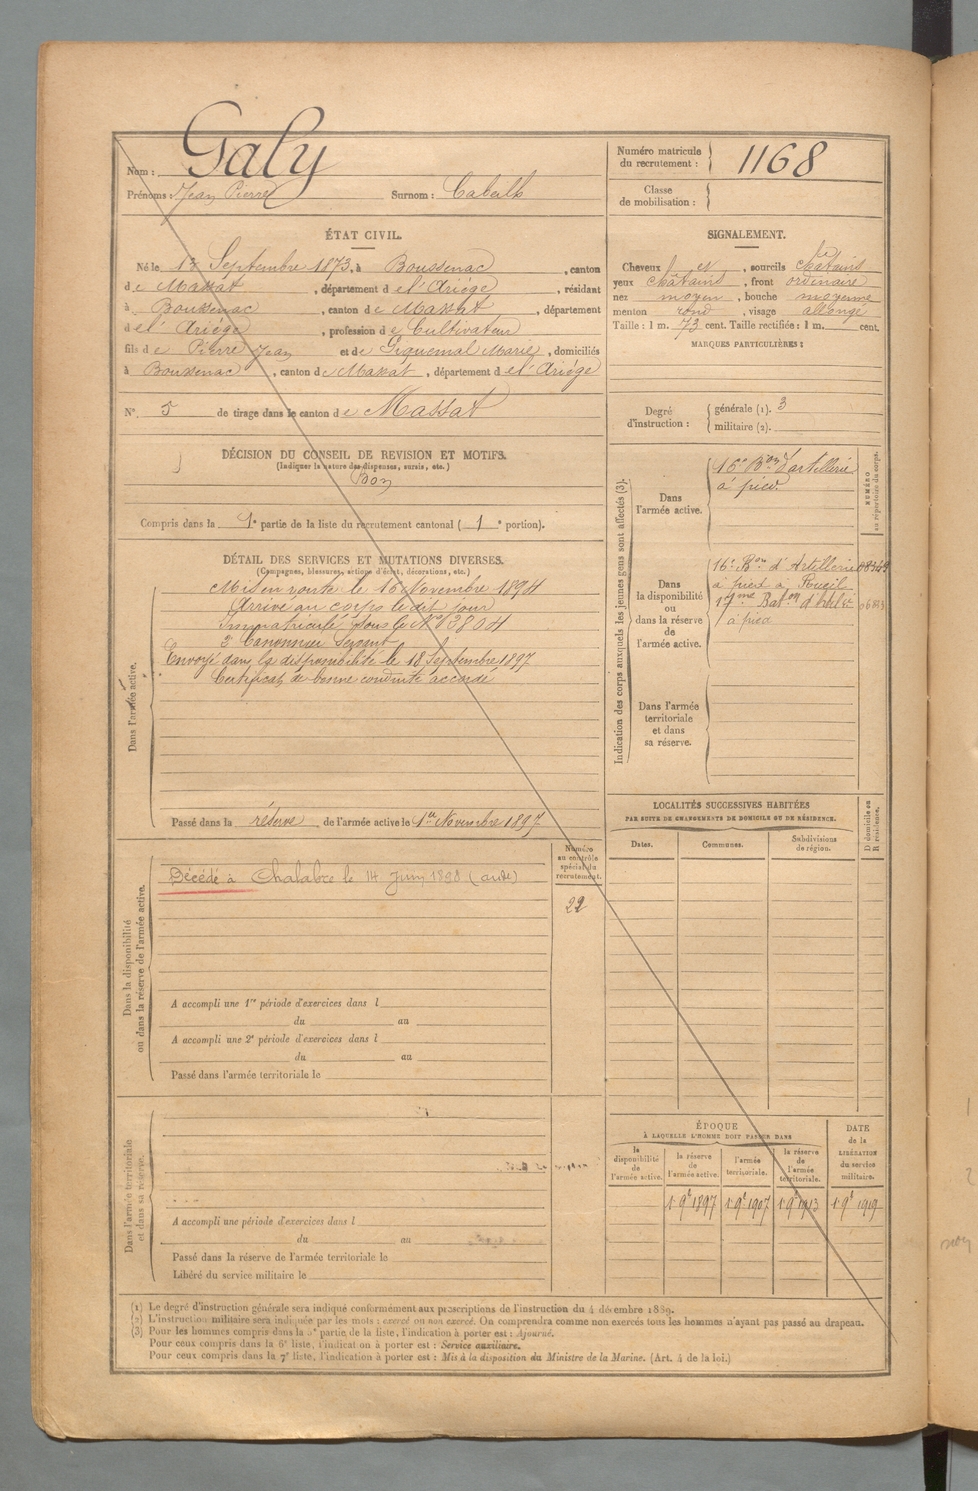 Nom : Galy
Prénoms : Jean Pierre Surnom :
Numéro matricule du recrutement : 1168
Classe de mobilisation :
ÉTAT CIVIL.
Né le 13 Septembre 1873, à Boussenac, canton
de Massat, département de l'Ariège, résidant
à Boussenac, canton de Massat, département
de l'Ariège, profession de Cultivateur
fils de Pierre Jean et de Piquemal Marie, domiciliés
à Boussenac, canton de Massat, département de l'Ariège
N° 5 de tirage dans le canton de Massat
DÉCISION DU CONSEIL DE REVISION ET MOTIFS.
(Indiquer la nature des dispenses, sursis, etc.)
Bon
Compris dans la 1e partie de la liste du recrutement cantonal (1e portion).
DÉTAIL DES SERVICES ET MUTATIONS DIVERSES.
(Campagnes, blessures, actions d'éclat, décorations, etc.)
Dans l'armée active.
Mis en route le 16 Novembre 1894
Arrivé au corps le dit jour
Immatriculé sous le N°
2e Canonnier Servant
Envoyé dans la disponibilité le 18 Septembre 1897
Certificat de bonne conduite accordé
Passé dans la réserve de l'armée active le 1er Novembre 1897
Dans la disponibilité
ou dans la réserve de l'armée active.
Numéro
au contrôle
spécial du
recrutement.
22
Décédé à Chalabre le 14 Juin 1898 (aude)
A accompli une 1re période d'exercices dans l
du au
A accompli une 2e période d'exercices dans l
du au
Passé dans l'armée territoriale le
Dans l'armée territoriale
et dans sa réserve.
A accompli une période d'exercices dans l
du au
Passé dans la réserve de l'armée territoriale le
Libéré du service militaire le
SIGNALEMENT.
Cheveux et, sourcils châtains
yeux châtains, front ordinaire
nez moyen, bouche moyenne
menton rond, visage allongé
Taille : 1 m. 73 cent. Taille rectifiée : 1 m. cent.
MARQUES PARTICULIÈRES :
Degré d'instruction :
générale (1). 3
militaire (2).
Indication des corps auxquels les jeunes gens sont affectés (3).
NUMÉRO
au répertoire du corps.
Dans
l'armée active.
16e Bon d'artillerie
à pied
Dans
la disponibilité
ou
dans la réserve
de
l'armée active.
16e Bon d'Artillerie
à pied à Rueil
17me Baton d'Artie
à pied
Dans l'armée
territoriale
et dans
sa réserve.
LOCALITÉS SUCCESSIVES HABITÉES
PAR SUITE DE CHANGEMENTS DE DOMICILE OU DE RÉSIDENCE.
D domicile ou
R résidence.
Dates. Communes. Subdivisions de région.
ÉPOQUE
À LAQUELLE L'HOMME DOIT PASSER DANS
DATE
de la
LIBÉRATION
du service
militaire.
la disponibilité de l'armée active.
la réserve de l'armée active.
l'armée territoriale.
la réserve de l'armée territoriale.
1 9e 1897 1 9e 1907 1 9e 1913 1 9e 1919
(1) Le degré d'instruction générale sera indiqué conformément aux prescriptions de l'instruction du 4 décembre 1889.
(2) L'instruction militaire sera indiquée par les mots : exercé ou non exercé. On comprendra comme non exercés tous les hommes n'ayant pas passé au drapeau.
(3) Pour les hommes compris dans la 5e partie de la liste, l'indication à porter est : Ajourné.
Pour ceux compris dans la 6e liste, l'indication à porter est : Service auxiliaire.
Pour ceux compris dans la 7e liste, l'indication à porter est : Mis à la disposition du Ministre de la Marine. (Art. 4 de la loi.)